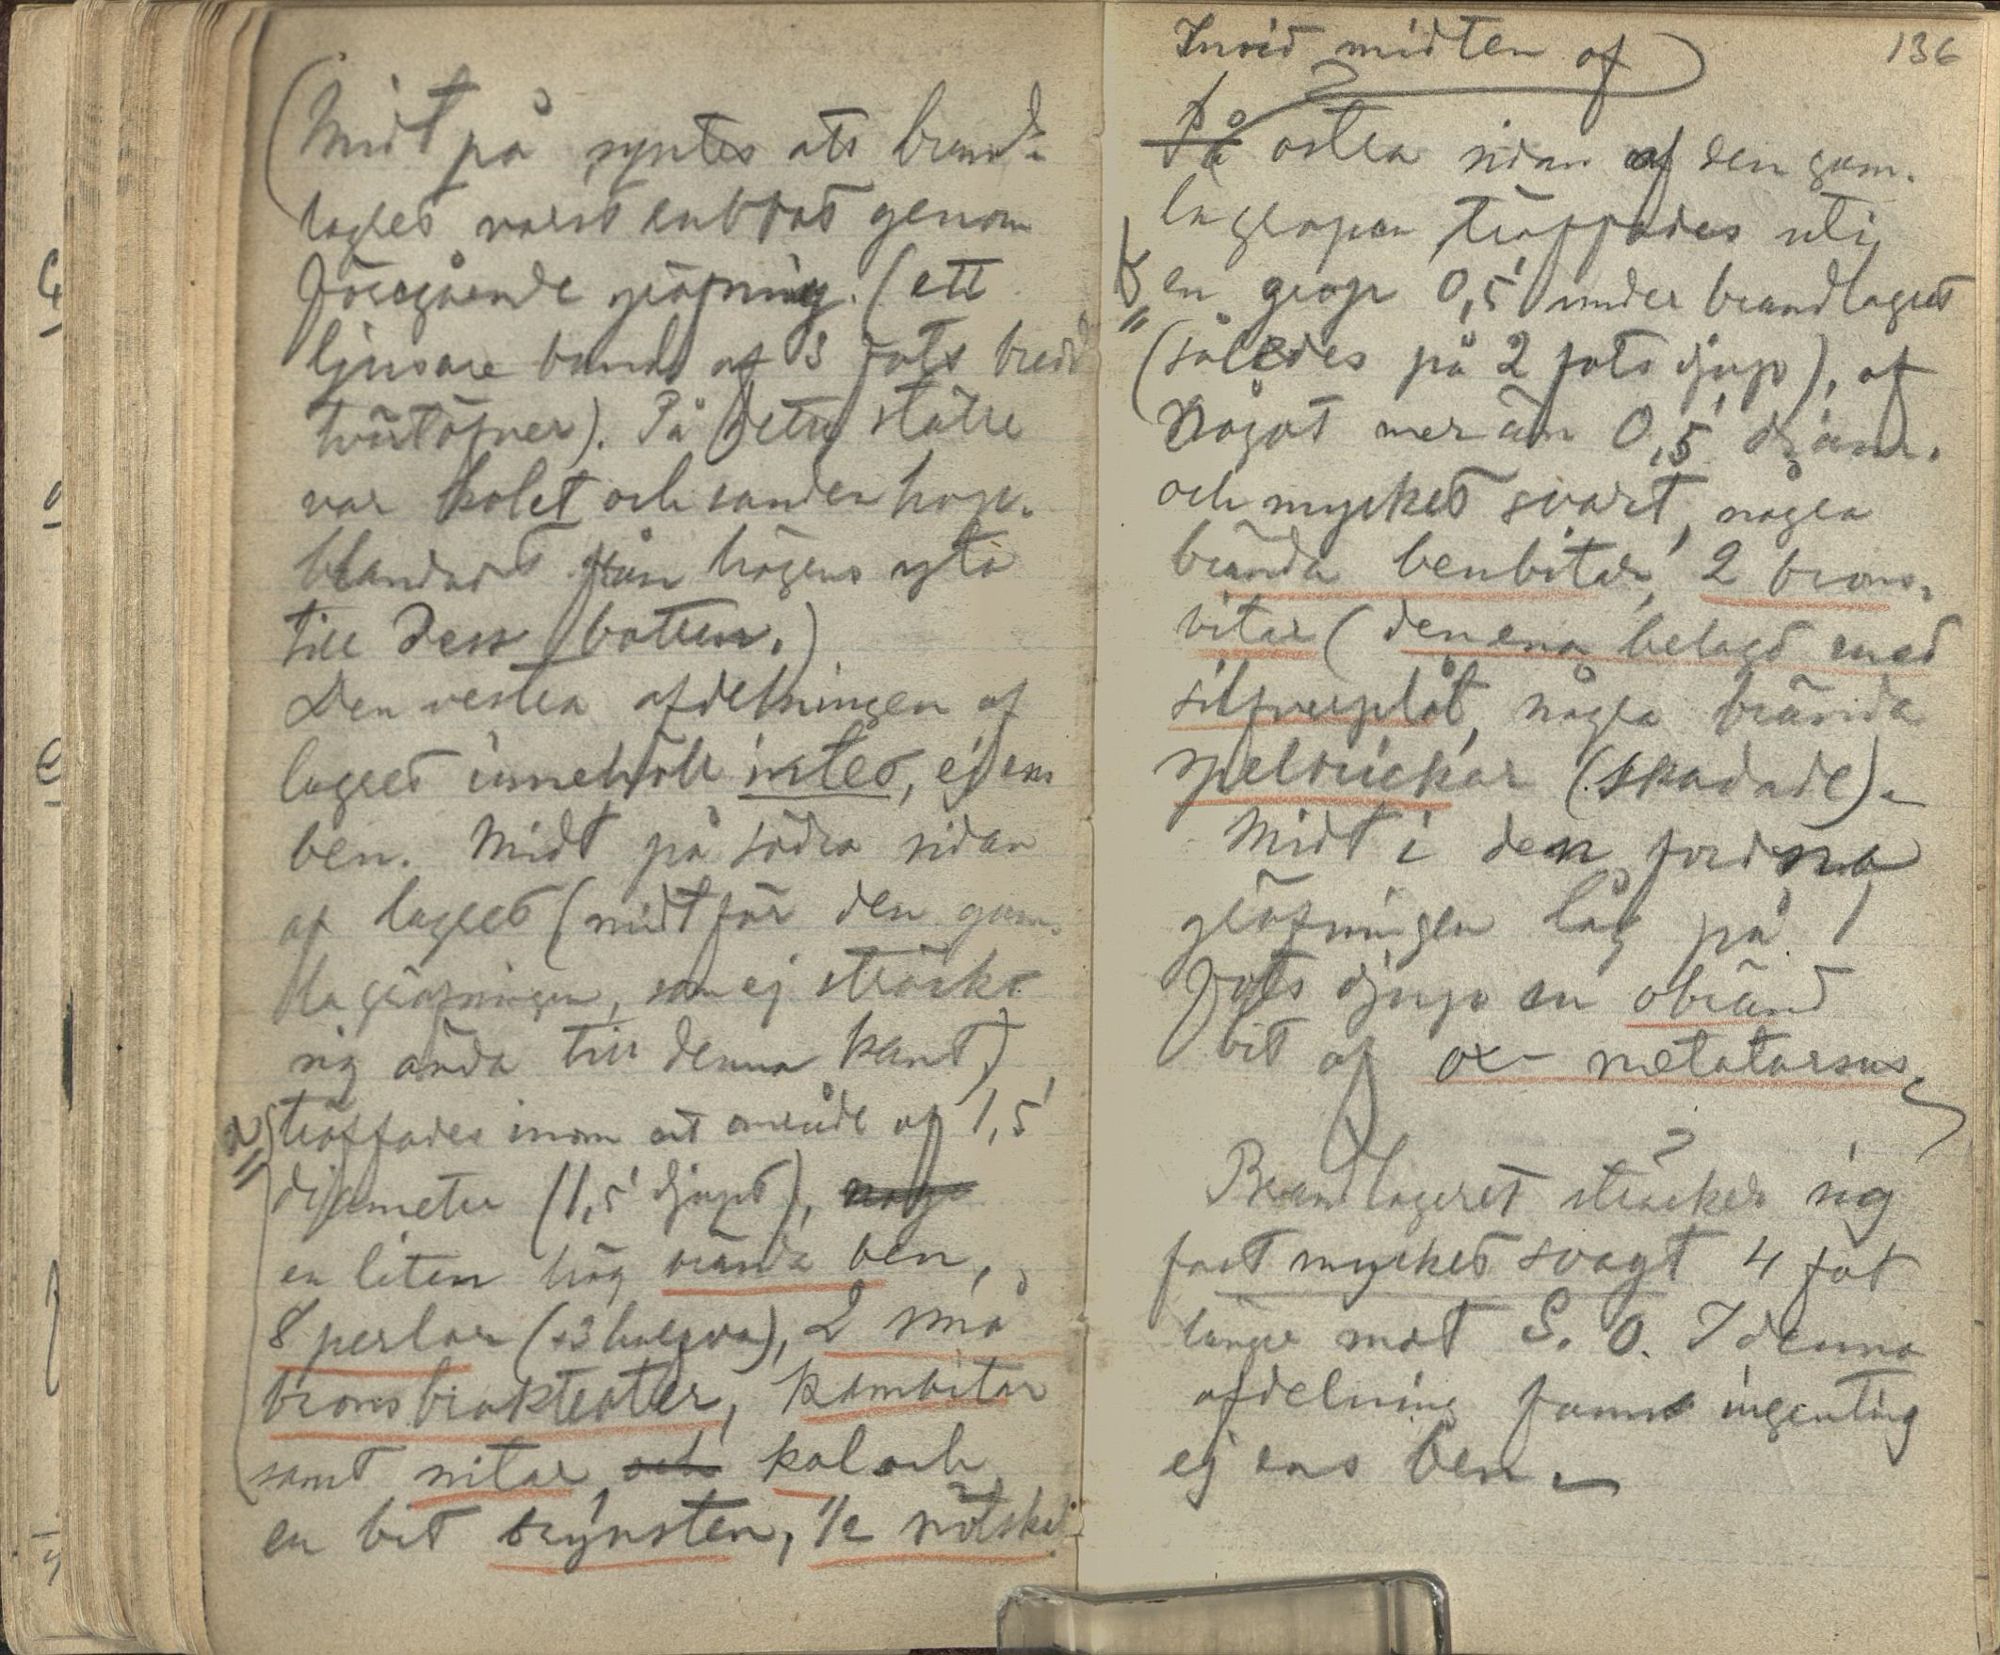 (Midt på syntes att brand-
lagret varit rubbat genom
föregående gräfning. (ett
ljusare band af 3 fots bredd
tvärtöfver). På detta ställe
var kolet och sanden hop-
blandadt från högens yta
till dess botten.)
Den vestra afdelningen af
lagret innehöll intet, ej ens
ben. Midt på södra sidan
af lagret (midt för den gam-
la gräfningen, som ej sträckt
sig ända till denna kant)
a träffades inom ett område af 1,5'
diameter (1,5' djupt),
en liten hög brända ben,
8 perlor (+3 halfva), 2 små
bronsbrakteater, kambitar
samt nitar och kol och
en bit brynsten, 1/2 nötskal
136
Invid midten af
På östra sidan af den gam-
la gropen träffades uti
b en grop 0,5' under brandlagret
(således på 2 fots djup), af
något mer än 0,5' diam.
och mycket svart, några
brända benbitar, 2 brons-
bitar (den ena belagd med
silfverplåt, några brända
spelbrickor (skadade).
Midt i den fordna
gräfningen låg på 1
fots djup en obränd
bit af ox-metatarsus.
Brandlagret sträcker sig
fast mycket svagt 4 fot
längre mot S. O. I denna
afdelning fanns ingenting
ej ens ben.